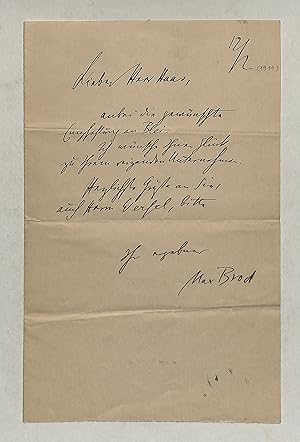 12/2 (1911)
Lieber Herr Haas,
anbei die gewünschte
Empfehlung an Blei.
Ich wünsche Ihnen Glück
zu Ihrem Unternehmen.
Herzlichste Grüße an Sie,
auch Herrn Werfel, bitte
Ihr ergebener
Max Brod